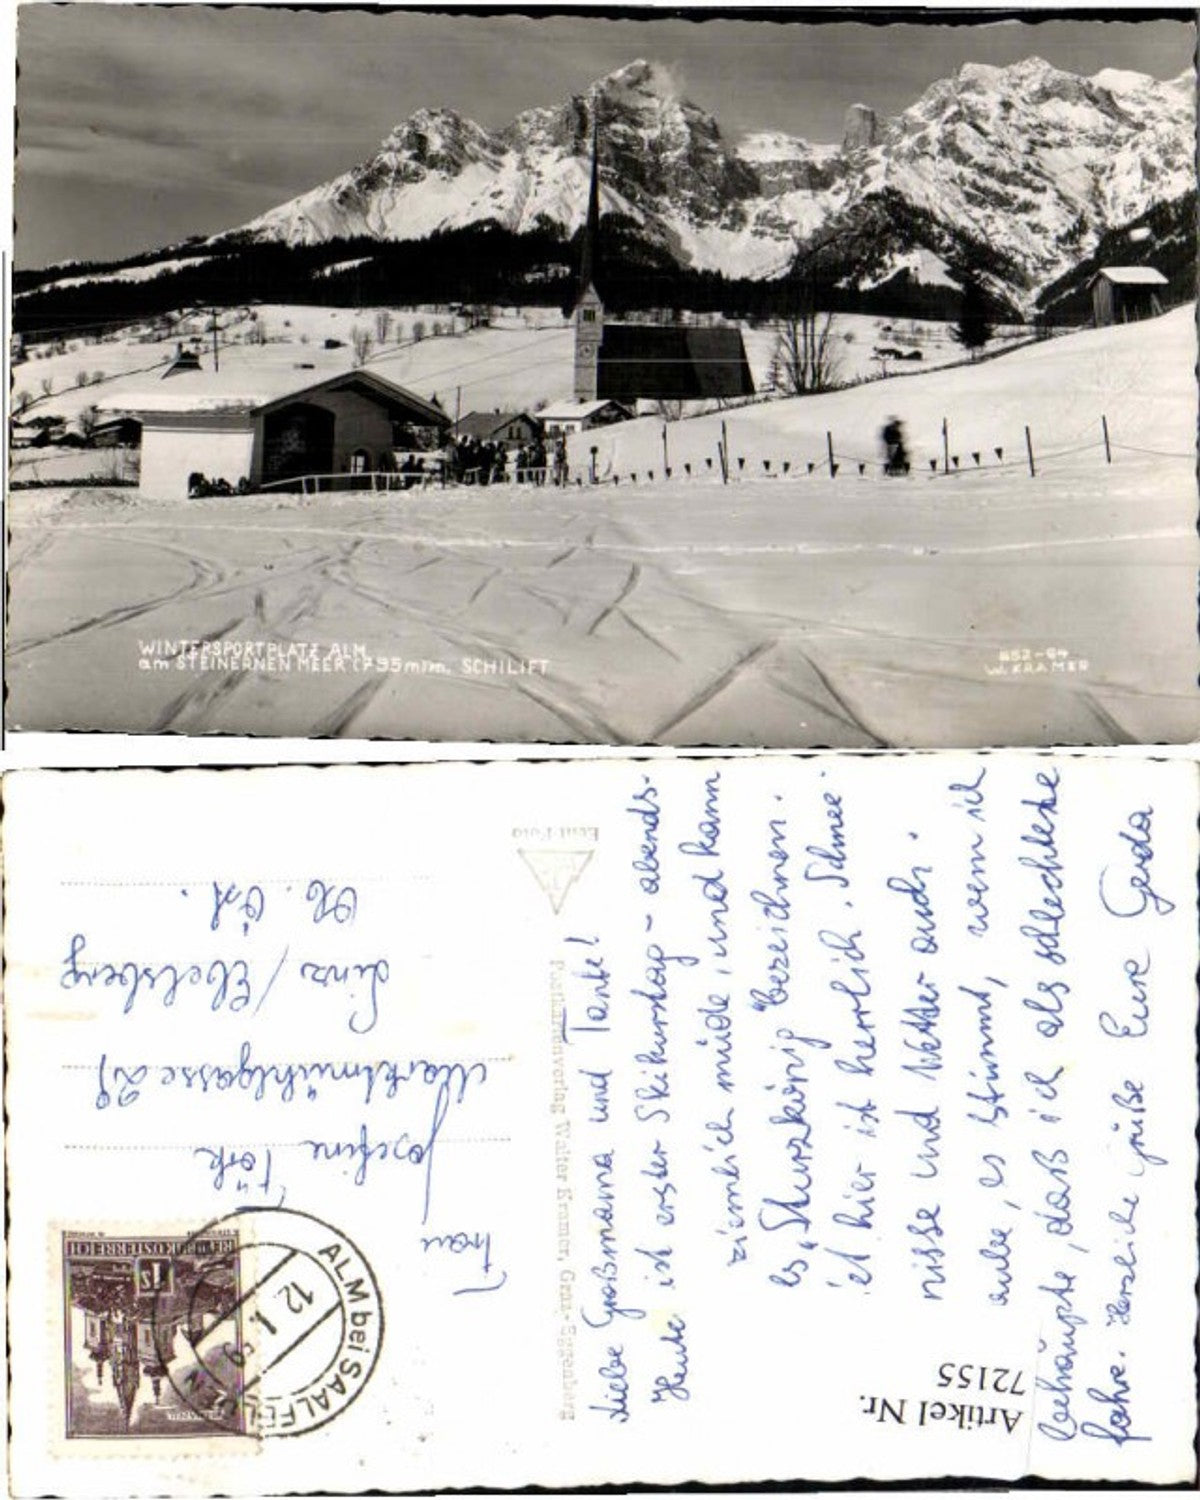 WINTERSPORTPLATZ ALM
am STEINERNEN MEER (795m) m. SCHILIFT
852-64
W. KRAMER
Liebe Großmama und Tante!
Heute ist erster Skikurstag - abends.
ziemlich müde, und kann
es "Sturzkönig" bezeichnen.
et hier ist herrlich. Schnee
nisse und Wetter auch.
aube, es stimmt, wenn ich
behaupte, daß ich als schlechteste
fahre. Herzliche Grüße Eure Gerda
Echt-Foto
Postkartenverlag Walter Kramer, Graz-Eggenberg
Frau
Josefine
Marktmühlgasse
Linz / Ebelsberg
Ob. Öst.
REPUBLIK ÖSTERREICH
1S
ALM bei SAALFELDEN
12.1.59
Artikel Nr.
72155